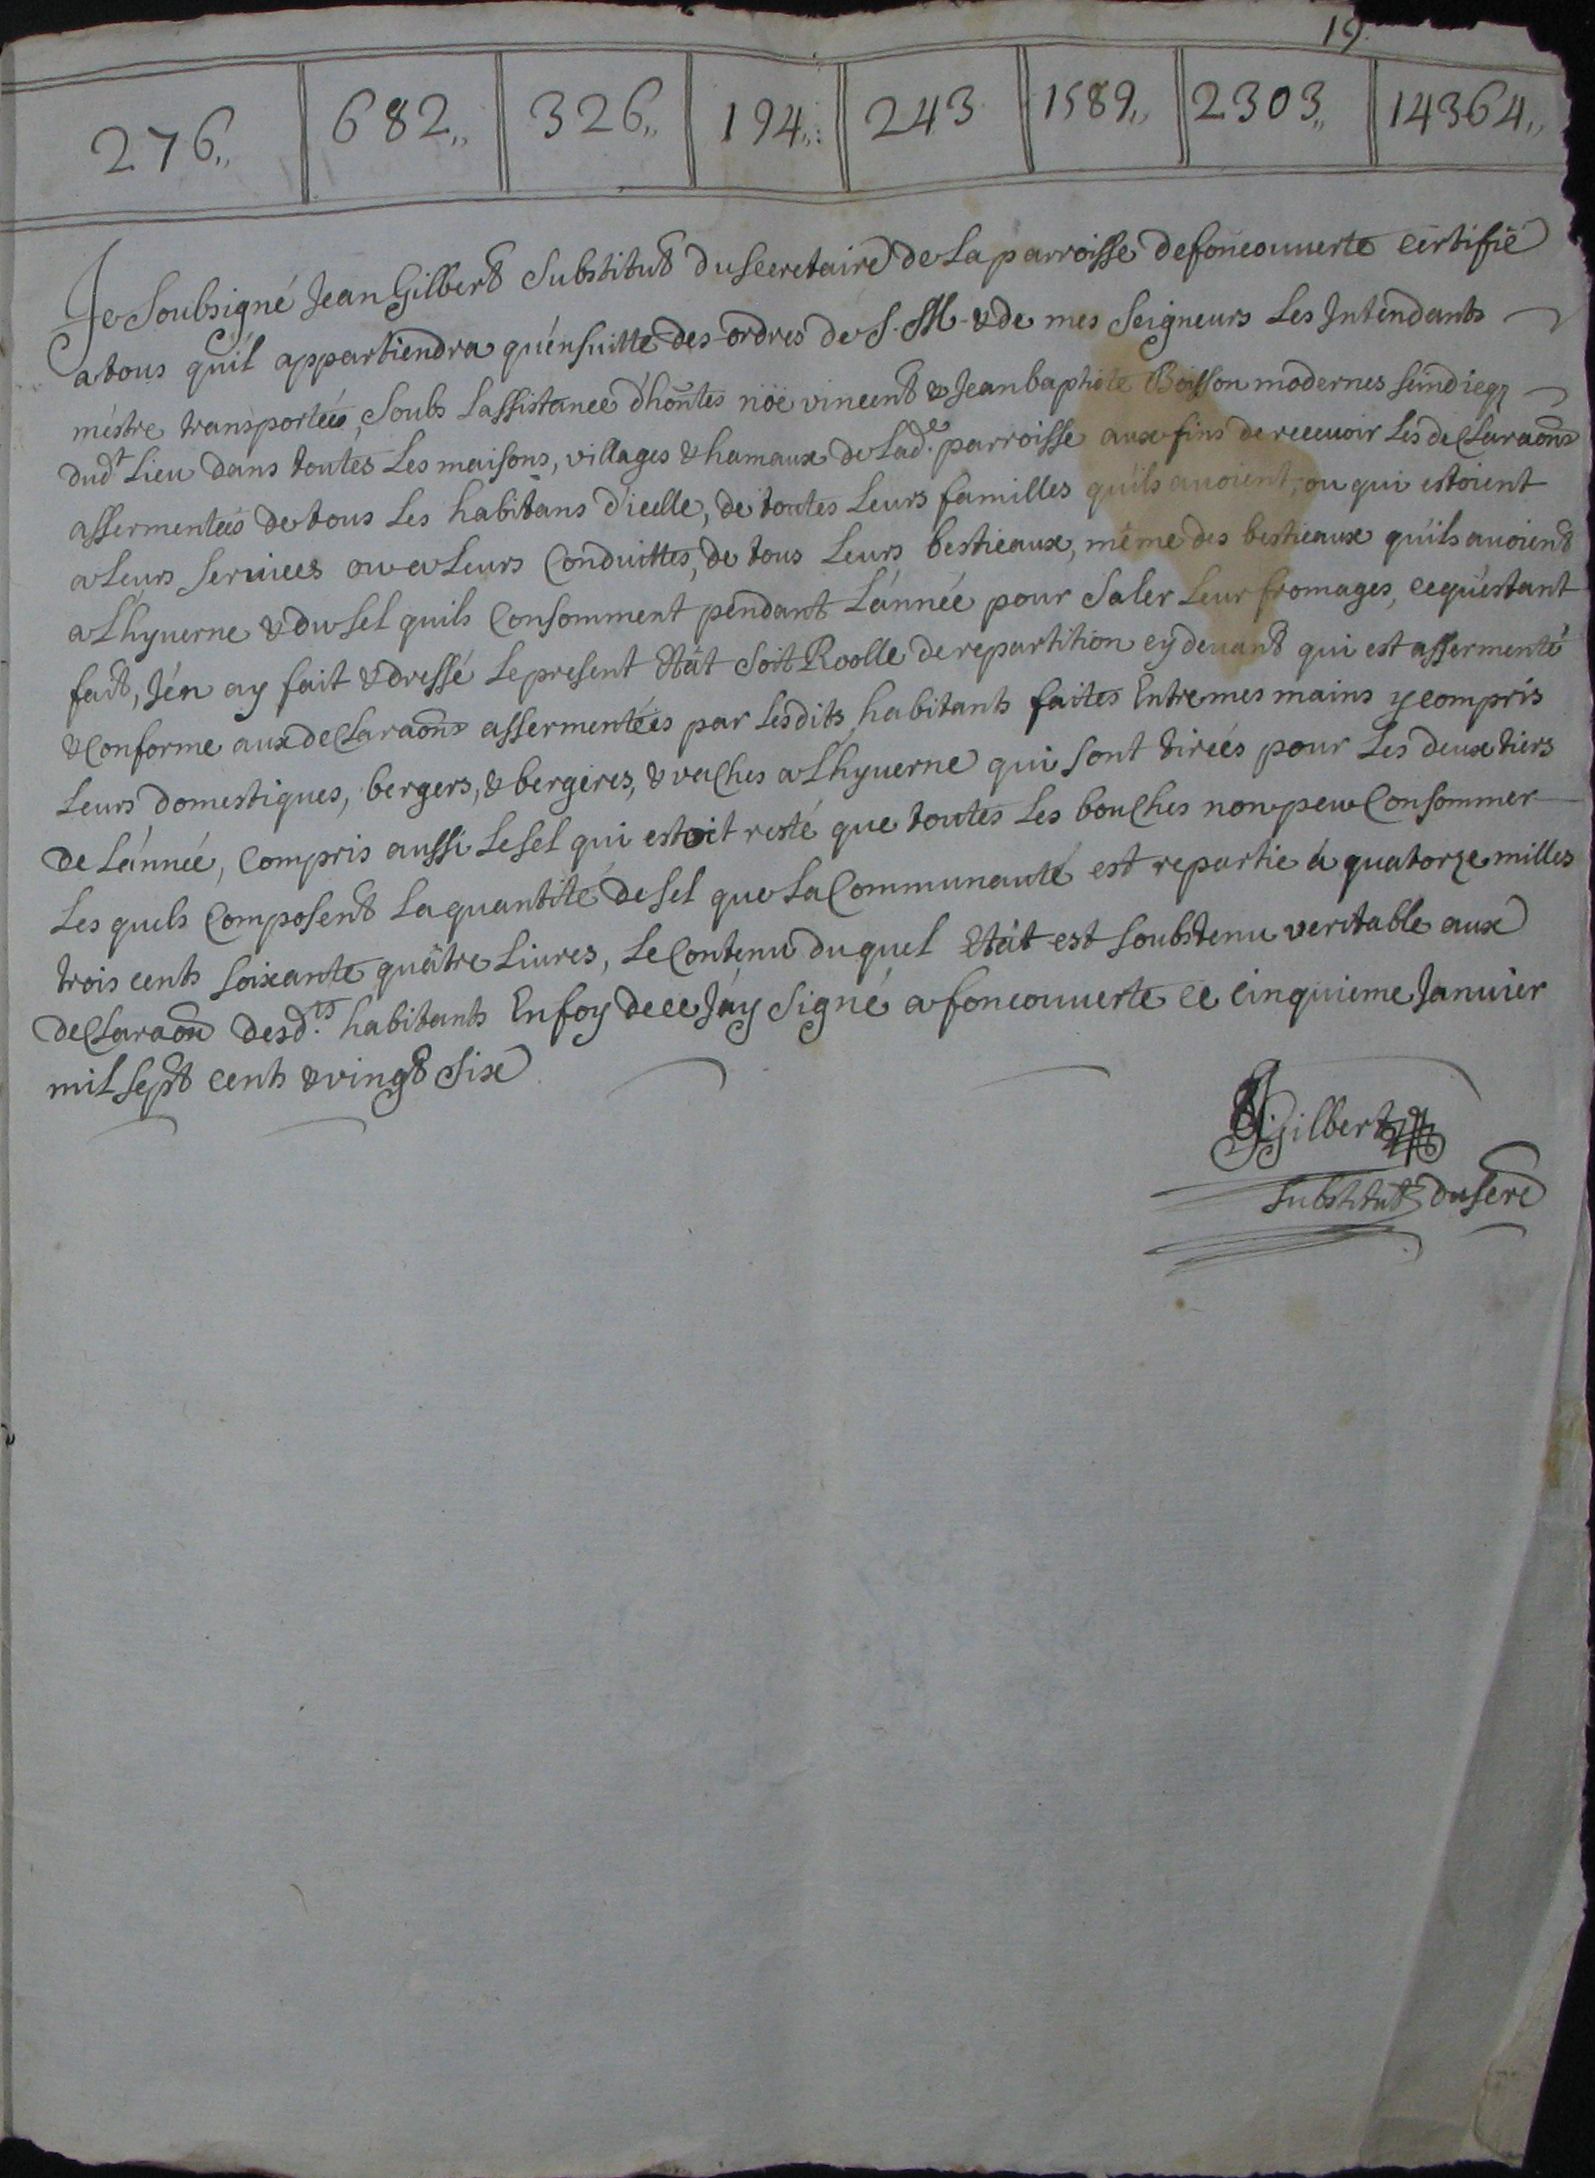 19
276,, 682,, 326,, 194,,: 243 1589,, 2303,, 14364,,
Je Soubsigné Jean Gilbert Substitut du Secretaire de La parroisse de foncouuerte certifie
a tous qu'il appartiendra qu'énsuitte des ordres de S. M. & de mes Seigneurs Les Intendants
méstre transportéé, Soubs Lassistance d'hon̄tes nöe vincent & Jean baptiste Boisson modernes scindicq
dud.t Lieu dans toutes Les maisons, villages & hamaux de Lad.e parroisse aux fins de receuoir Les declaraōns
assermentéés de tous Les habitans d'icelle, de toutes Leurs familles qu'ils auoient, ou qui estoient
a Leurs seruices ou a Leurs Conduittes, de tous Leurs bestieaux, méme des bestieaux qu'ils auoient
a Lhyuerne & du sel quils Consomment pendant L'année pour Saler Leur fromages, cequ'estant
fait, J'én ay fait & dressé Le present Etát Soit Roolle de repartition cy deuant qui est assermenté
& Conforme aux declaraōns assermentéés par Lesdits habitants faites Entre mes mains y compris
Leurs domestiques, bergers, & bergeres, & vaches a Lhyuerne qui sont tiréés pour Les deux tiers
de L'année, Compris aussi Le sel qui estoit resté que toutes Les bouches non peu Consommer
Les quels Composent La quantité de sel que La Communauté est repartie á quatorze milles
trois cents soixante quâtre Liures, Le Contenu du quel Etát est soubstenu veritable aux
declaraōn desd.ts habitants En foy de ce J'áy signé a foncouuerte ce cinquieme Januier
mil sept cents & vingt Six
J Gilbert
substitut du secre